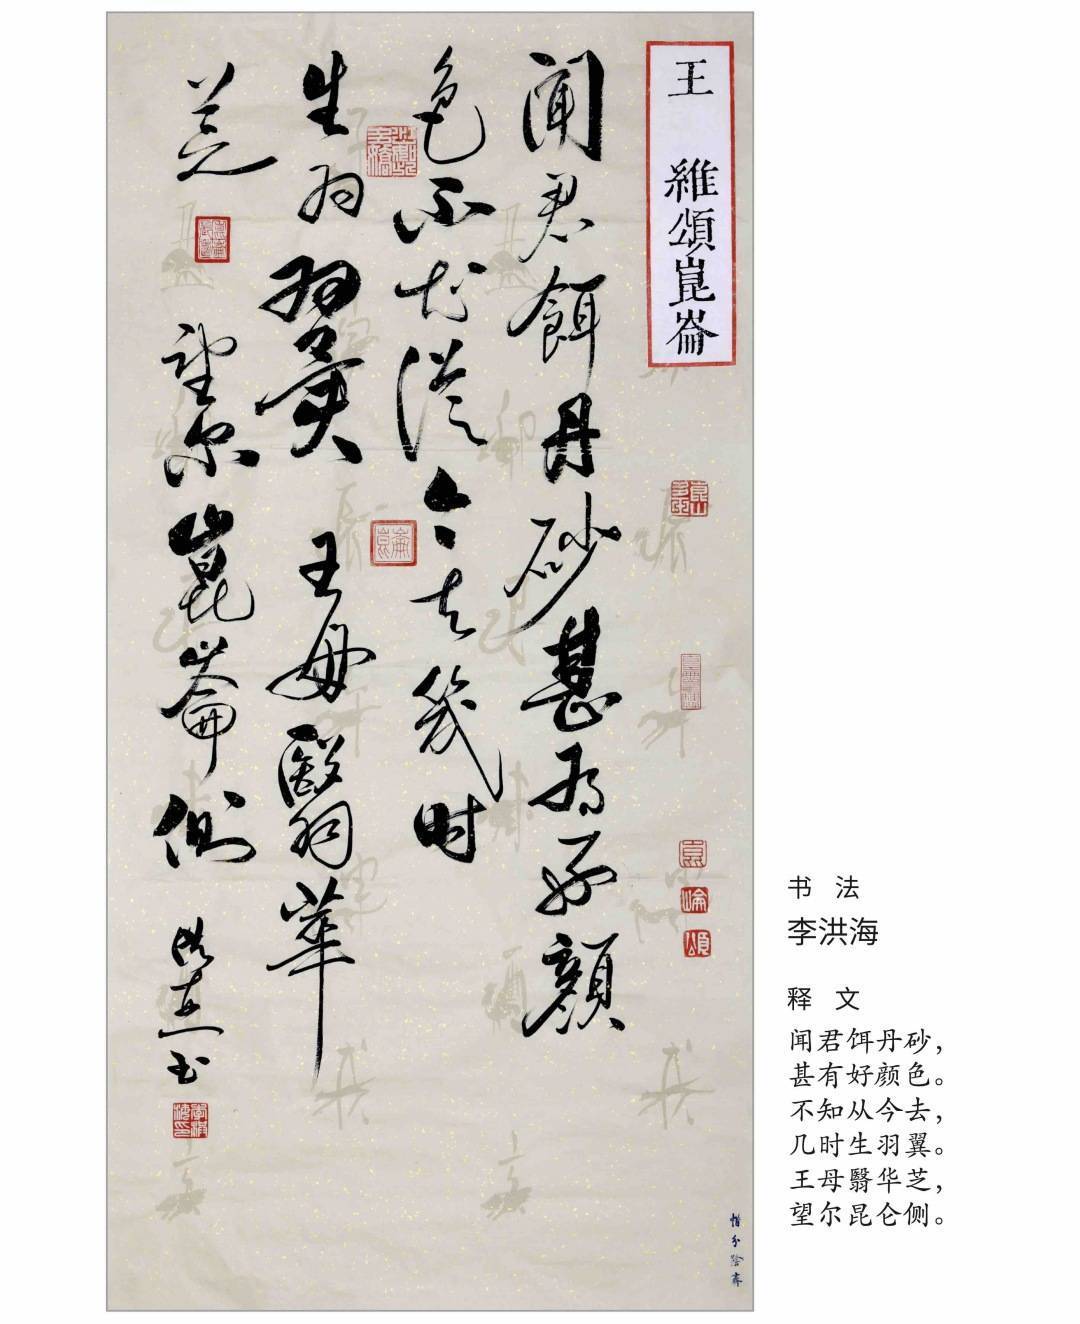 王 維頌崑崙
聞君餌丹砂甚有好顏
色不知從今去幾时
生羽翼王母翳華
芝望尔崑崙侧
洪海书
惜分陰齋
书 法
李洪海
释 文
闻君饵丹砂，
甚有好颜色。
不知从今去，
几时生羽翼。
王母翳华芝，
望尔昆仑侧。